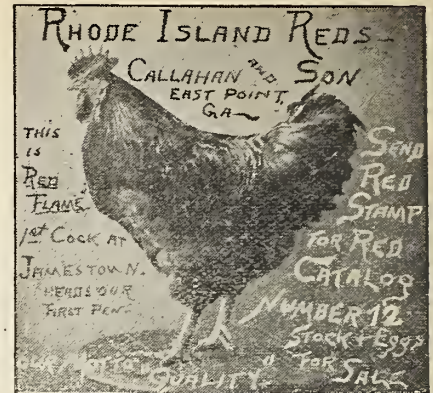 RHODE ISLAND REDS-
CALLAHAN AND SON
EAST POINT,
GA-
THIS
IS
RED
FLAME
1st COCK AT
JAMESTOWN.
HEADS OUR
FIRST PEN-
SEND
RED
STAMP
FOR RED
CATALOG
NUMBER 12
STOCK & EGGS
FOR SALE
OUR MOTTO "QUALITY"